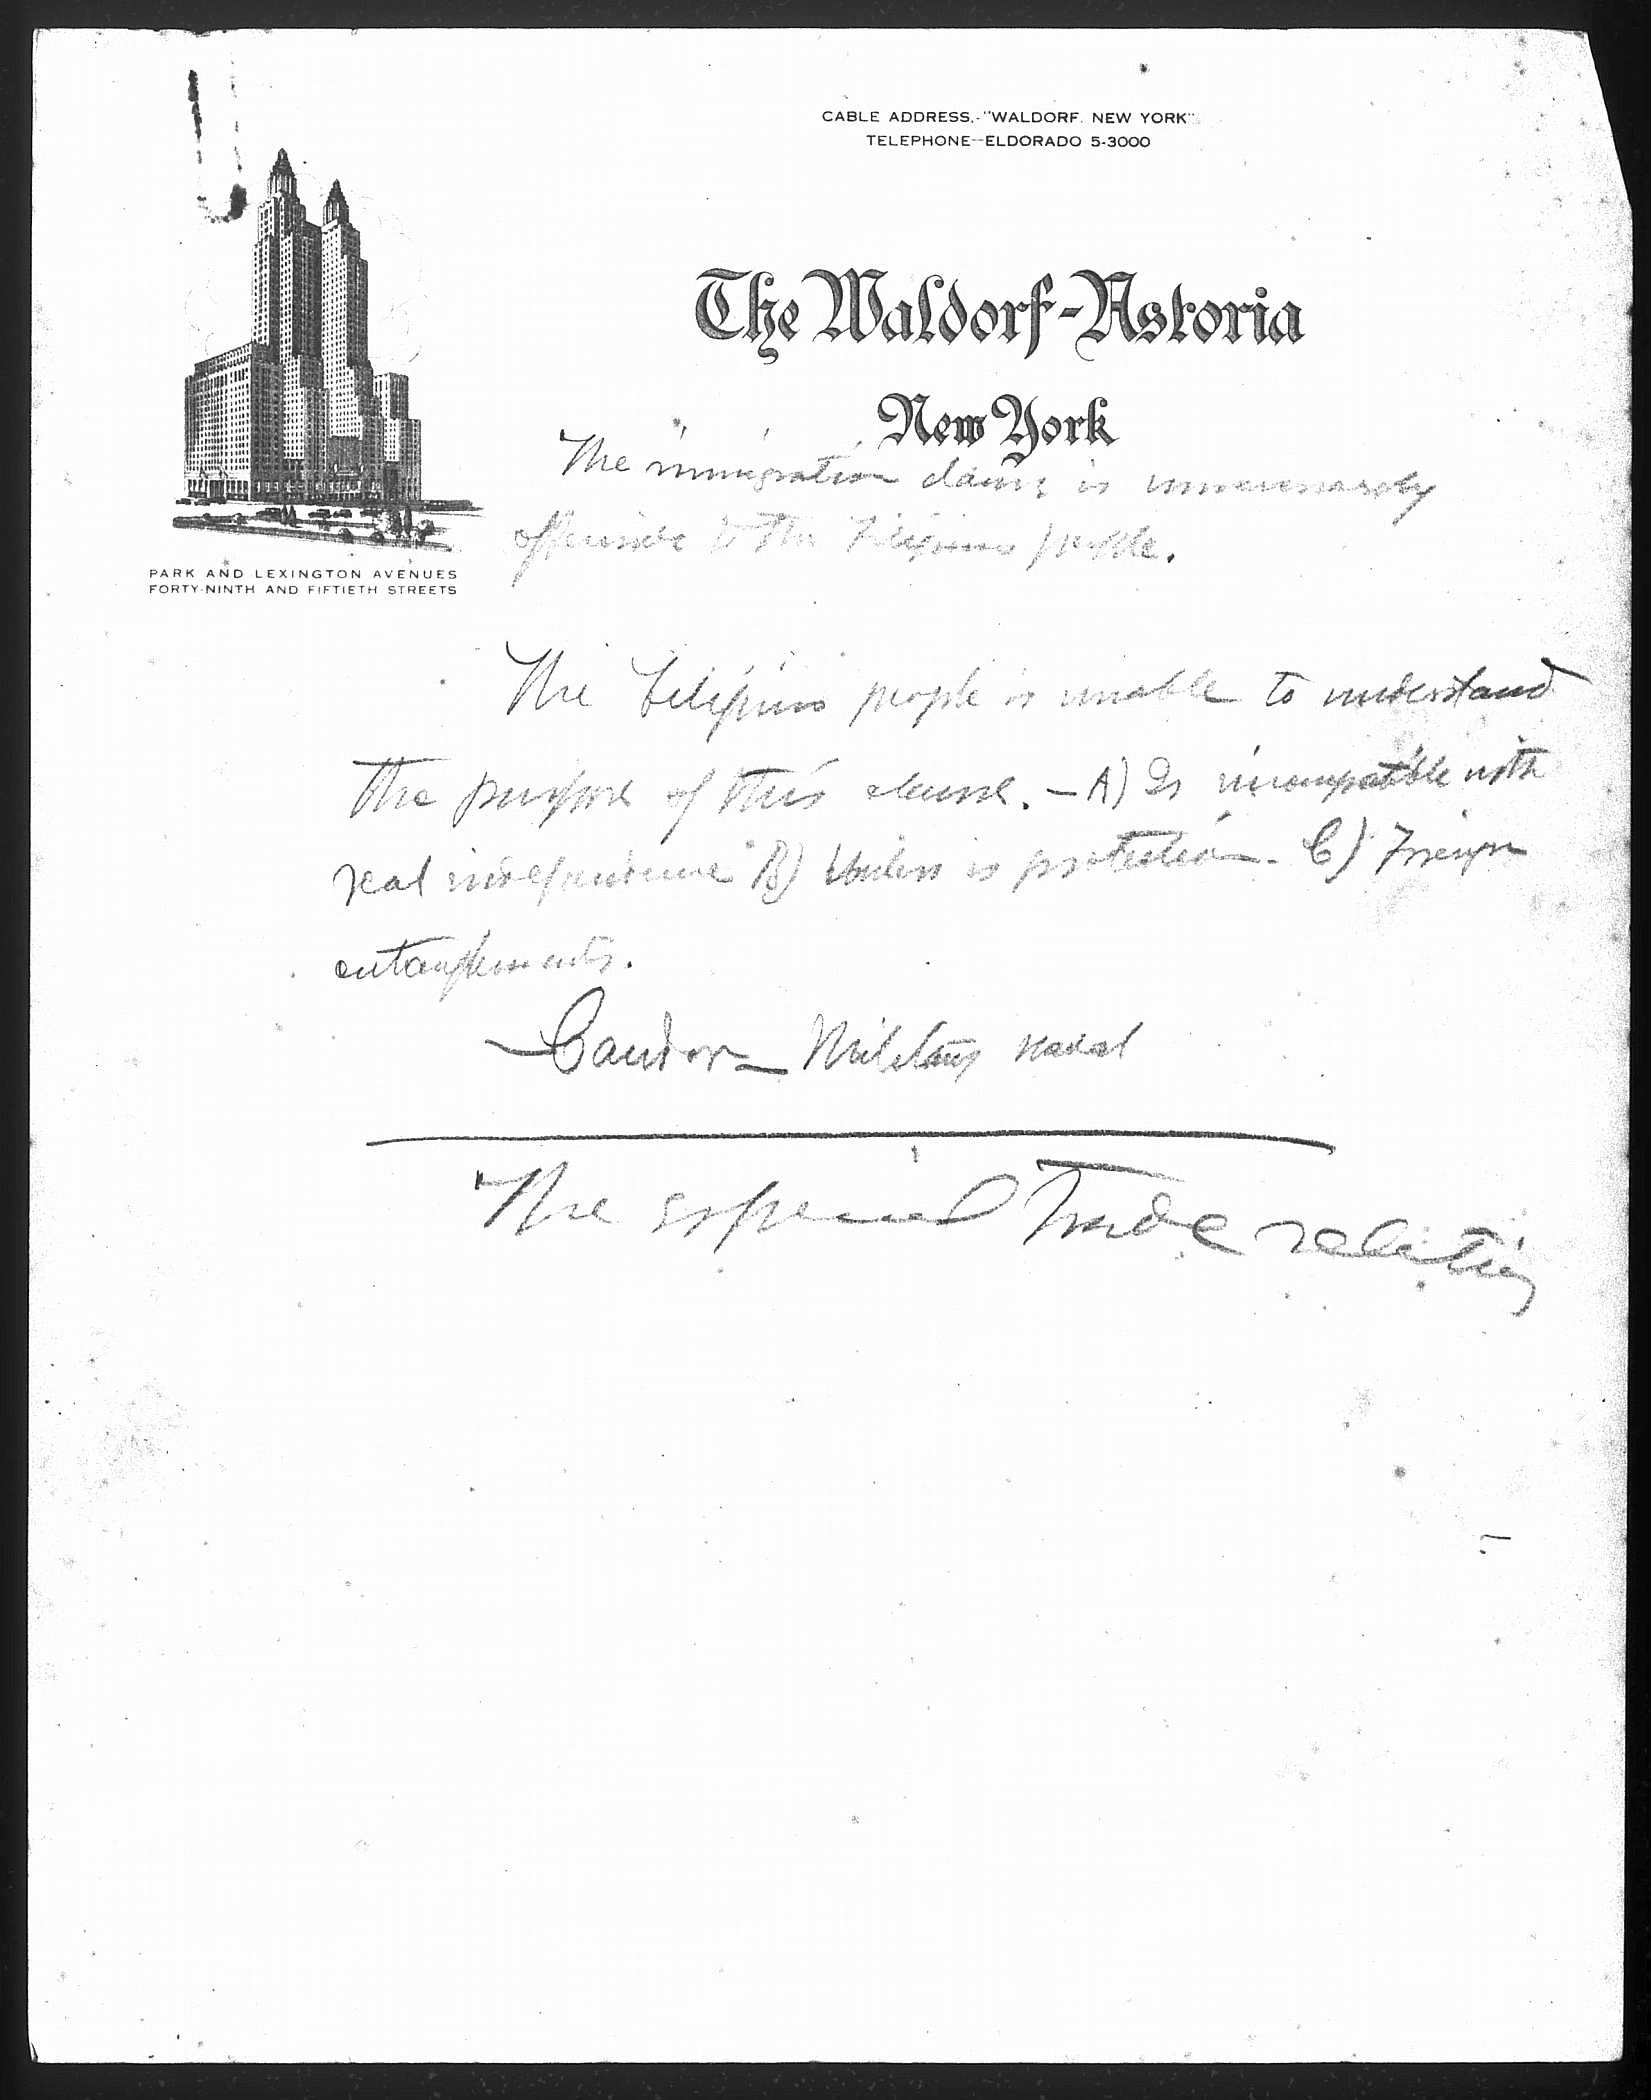 CABLE ADDRESS.-"WALDORF. NEW YORK"
TELEPHONE-ELDORADO 5-3000
The Waldorf-Astoria
New York
PARK AND LEXINGTON AVENUES
FORTY-NINTH AND FIFTIETH STREETS
The immigration clause is unnecessarily
offensive to the Filipino people.
The Filipino people is unable to understand
the purpose of this clause. - A) Is incompatible with
real independence B) Unless is protection - C) Foreign
entanglements.
Candor - Military naval
The especial trade relations